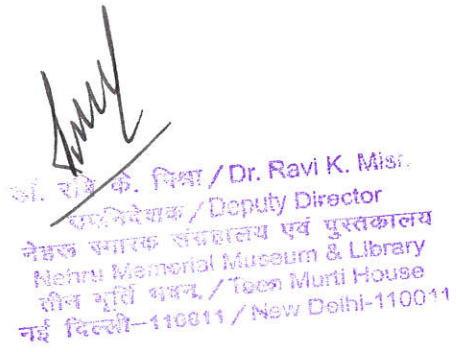 डॉ. रवि के. मिश्रा / Dr. Ravi K. Misr
उपनिदेशक / Deputy Director
नेहरू स्मारक संग्रहालय एवं पुस्तकालय
Nehru Memorial Museum & Library
तीन मूर्ति भवन, / Teen Murti House
नई दिल्ली-110011 / New Delhi-110011